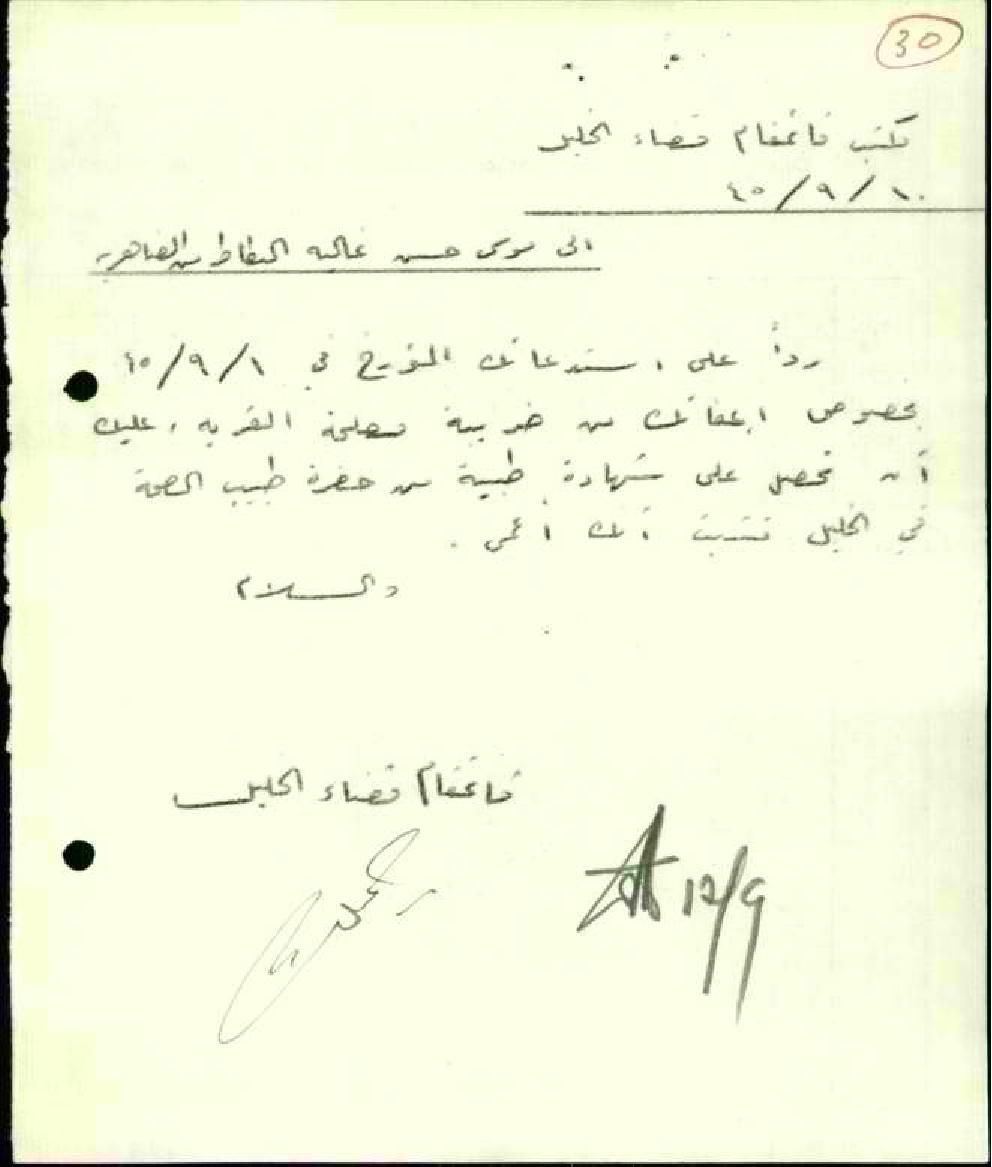 30
مكتب قائمقام قضاء الخليل
١٠/٩/٤٥
الى موسى حسن من الظاهريه
رداً على استدعائك المؤرخ في ١/٩/٤٥
بخصوص اعفائك من ضريبة القريه، عليك
أن تحصل على شهادة طبية من حضرة طبيب الصحة
في الخليل تثبت أنك أعمى.
والسلام
قائمقام قضاء الخليل
12/9